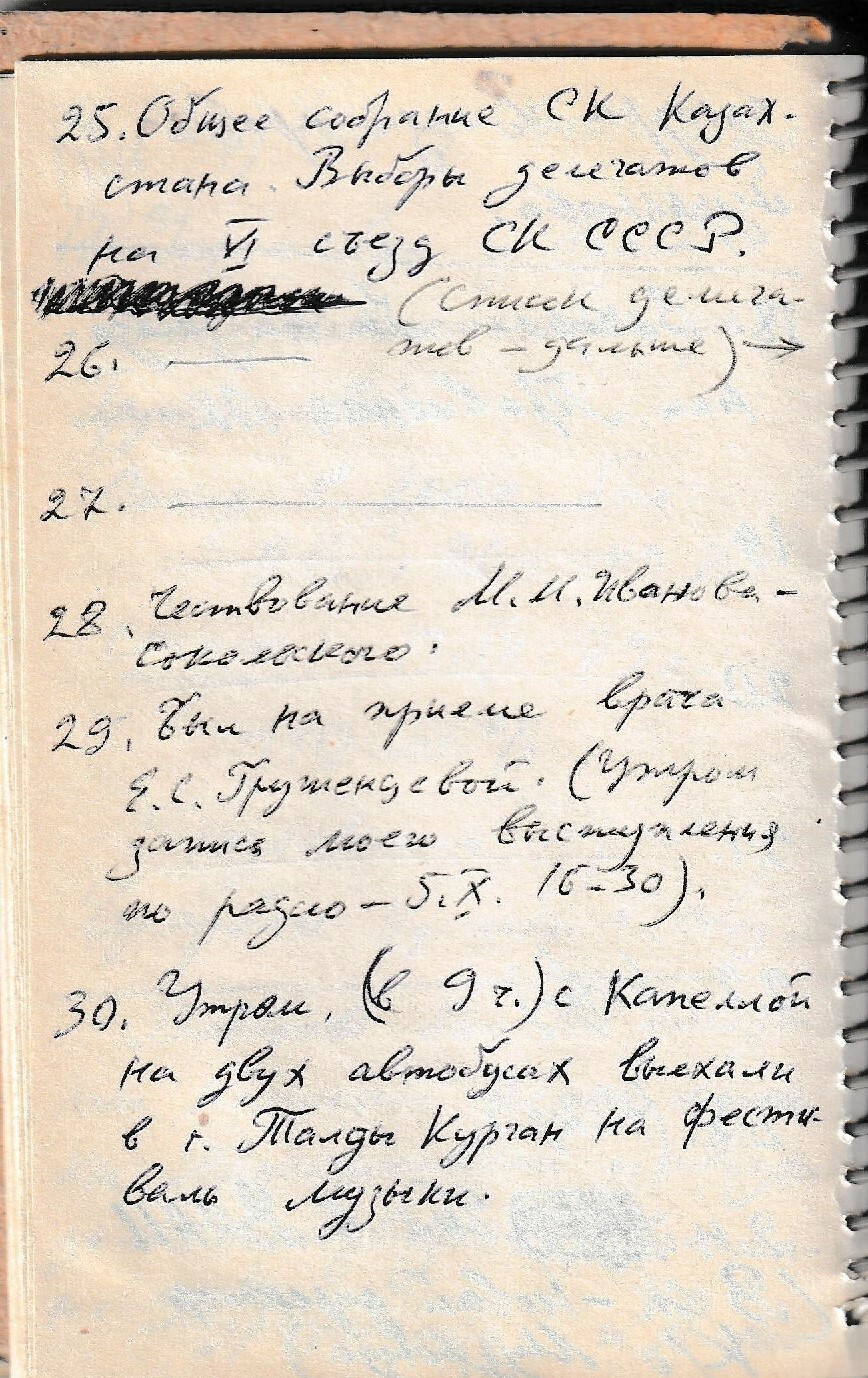 25. Общее собрание СК Казах-
стана. Выборы делегатов
на VI съезд СК СССР.
(список делега-
26. тов – дальше) →
27.
28. Чествование М.М. Иванова-
Сокольского.
29. Был на приеме врача
Е.С. (Утром
запись моего выступления
по радио – 5.X. 16-30).
30. Утром, (в 9 ч.) с Капеллой
на двух автобусах выехали
в г. Талды Курган на фести-
валь музыки.